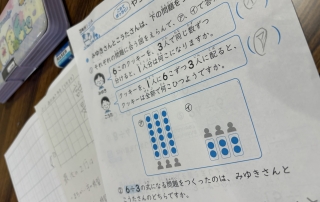 みゆきさんとこうたさんは、下の問題を
それぞれの問題に合う図をえらんで、㋐、㋑で答
6このクッキーを、3人で同じ数ずつ
分けると、1人分は何こになりますか。
クッキーを、1人に6こずつ3人に配ると、
クッキーは全部で何こひつようですか。
みゆき
こうた
㋐
㋑
② 6÷3の式になる問題をつくったのは、みゆきさんと
こうたさんのどちらですか。